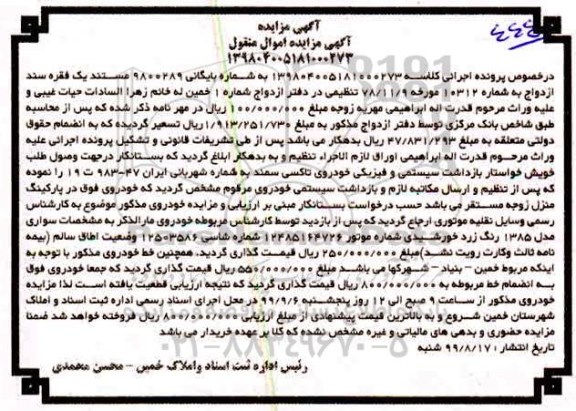 آگهی مزایده
آگهی مزایده اموال منقول
۱۳۹۸۰۴۰۰۵۱۸۱۰۰۰۲۷۳
درخصوص پرونده اجرائی کلاسه ۱۳۹۸۰۴۰۰۵۱۸۱۰۰۰۲۷۳ به شماره بایگانی ۹۸۰۰۲۸۹ مستند یک فقره سند
ازدواج به شماره ۱۰۳۱۲ مورخه ۷۸/۱۱/۹ تنظیمی در دفتر ازدواج شماره ۱ خمین له خانم زهرا السادات حیات غیبی و
علیه وراث مرحوم قدرت اله ابراهیمی مهریه زوجه مبلغ ۱۰۰/۰۰۰/۰۰۰ ریال در مهر نامه ذکر شده که پس از محاسبه
طبق شاخص بانک مرکزی توسط دفتر ازدواج مذکور به مبلغ ۱/۰۱۳/۲۵۱/۷۳۰ ریال تسعیر گردیده که به انضمام حقوق
دولتی متعلقه به مبلغ ۴۷/۸۳۱/۲۹۳ ریال بدهکار می باشد پس از طی تشریفات قانونی و تشکیل پرونده اجرائی علیه
وراث مرحوم قدرت اله ابراهیمی اوراق لازم الاجراء تنظیم و به بدهکار ابلاغ گردید که بستانکار درجهت وصول طلب
خویش خواستار بازداشت سیستمی و فیزیکی خودروی تاکسی سمند به شماره شهربانی ایران ۴۷-۹۸۳ ت ۱۹ را نموده
که پس از تنظیم و ارسال مکاتبه لازم و بازداشت سیستمی خودروی مرقوم مشخص گردید که خودروی فوق در پارکینگ
منزل زوجه مستقر می باشد حسب درخواست بستانکار مبنی بر ارزیابی و مزایده خودروی مذکور موضوع به کارشناس
رسمی وسایل نقلیه موتوری ارجاع گردید که پس از بازدید توسط کارشناس مربوطه خودروی مارالذکر به مشخصات سواری
مدل ۱۳۸۵ رنگ زرد خورشیدی شماره موتور ۱۲۴۸۵۱۶۴۷۲۶ شماره شاسی ۱۲۵۰۳۵۸۶ وضعیت اطاق سالم (بیمه
نامه ثالث وکارت رویت نشد) مبلغ ۲۵۰/۰۰۰/۰۰۰ ریال قیمت گذاری گردید. همچنین خط خودروی مذکور با توجه به
اینکه مربوط خمین - بنیاد - شهرکها می باشد مبلغ ۵۵۰/۰۰۰/۰۰۰ ریال قیمت گذاری گردید که جمعا خودروی فوق
به انضمام خط مربوطه به ۸۰۰/۰۰۰/۰۰۰ ریال قیمت گذاری گردید که نتیجه ارزیابی قطعیت یافته است لذا مزایده
خودروی مذکور از ساعت ۹ صبح الی ۱۲ روز پنجشنبه ۹۹/۹/۶ در محل اجرای اسناد رسمی اداره ثبت اسناد و املاک
شهرستان خمین شروع و به بالاترین قیمت پیشنهادی از مبلغ ارزیابی ۸۰۰/۰۰۰/۰۰۰ ریال فروخته خواهد شد ضمنا
مزایده حضوری و بدهی های مالیاتی و غیره مشخص نشده که کلا بر عهده خریدار می باشد
تاریخ انتشار: ۹۹/۸/۱۷ شنبه
رئیس اداره ثبت اسناد واملاک خمین - محسن محمدی